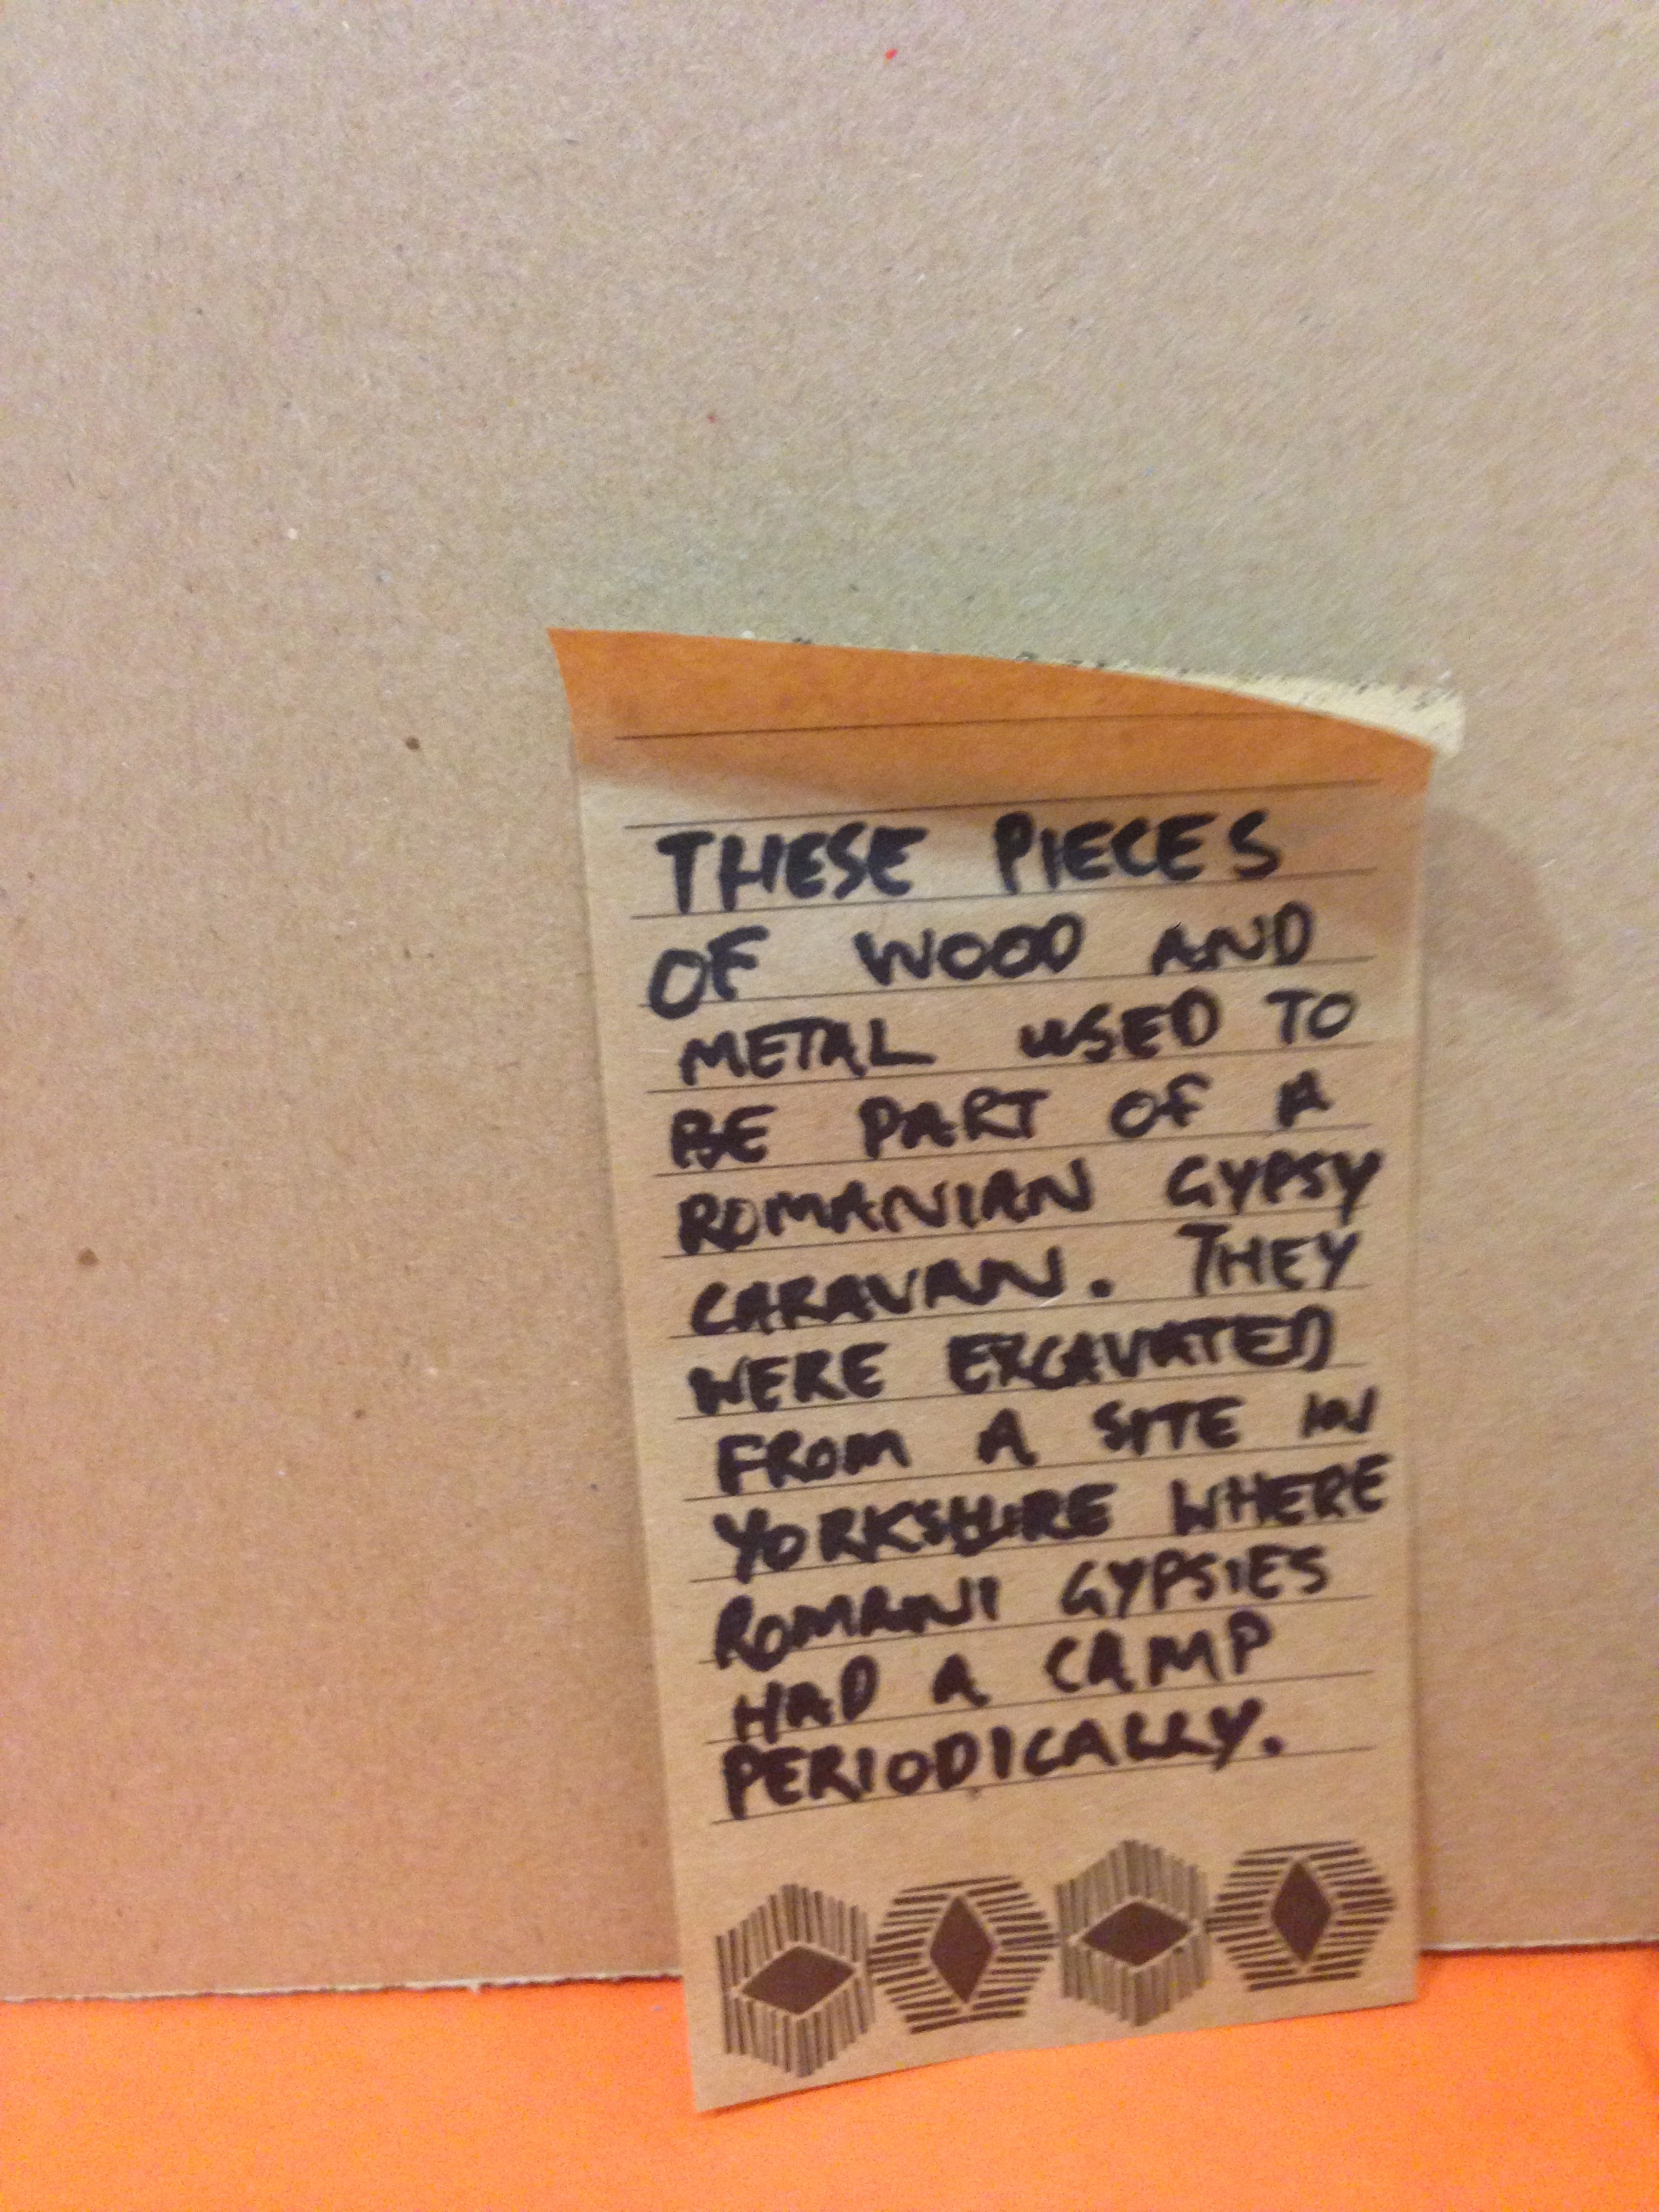 THESE PIECES
OF WOOD AND
METAL USED TO
BE PART OF A
ROMANIAN GYPSY
CARAVAN. THEY
WERE EXCAVATED
FROM A SITE IN
YORKSHIRE WHERE
ROMANI GYPSIES
HAD A CAMP
PERIODICALLY.